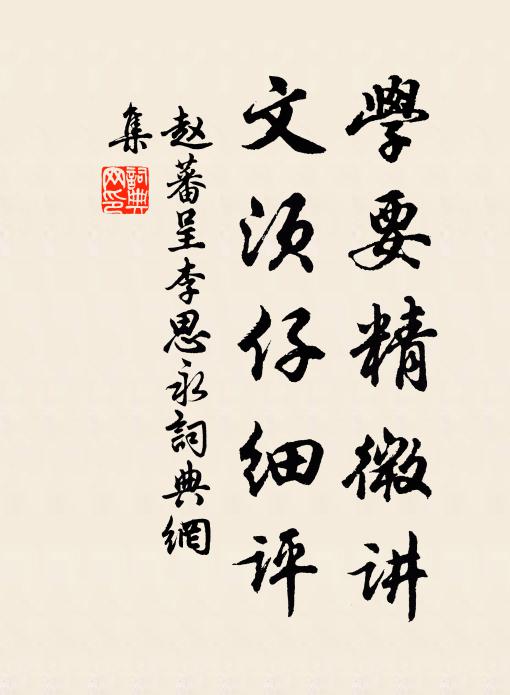 學要精微讲
文须仔细评
赵蕃呈李思永詞典網
集
詞典网印